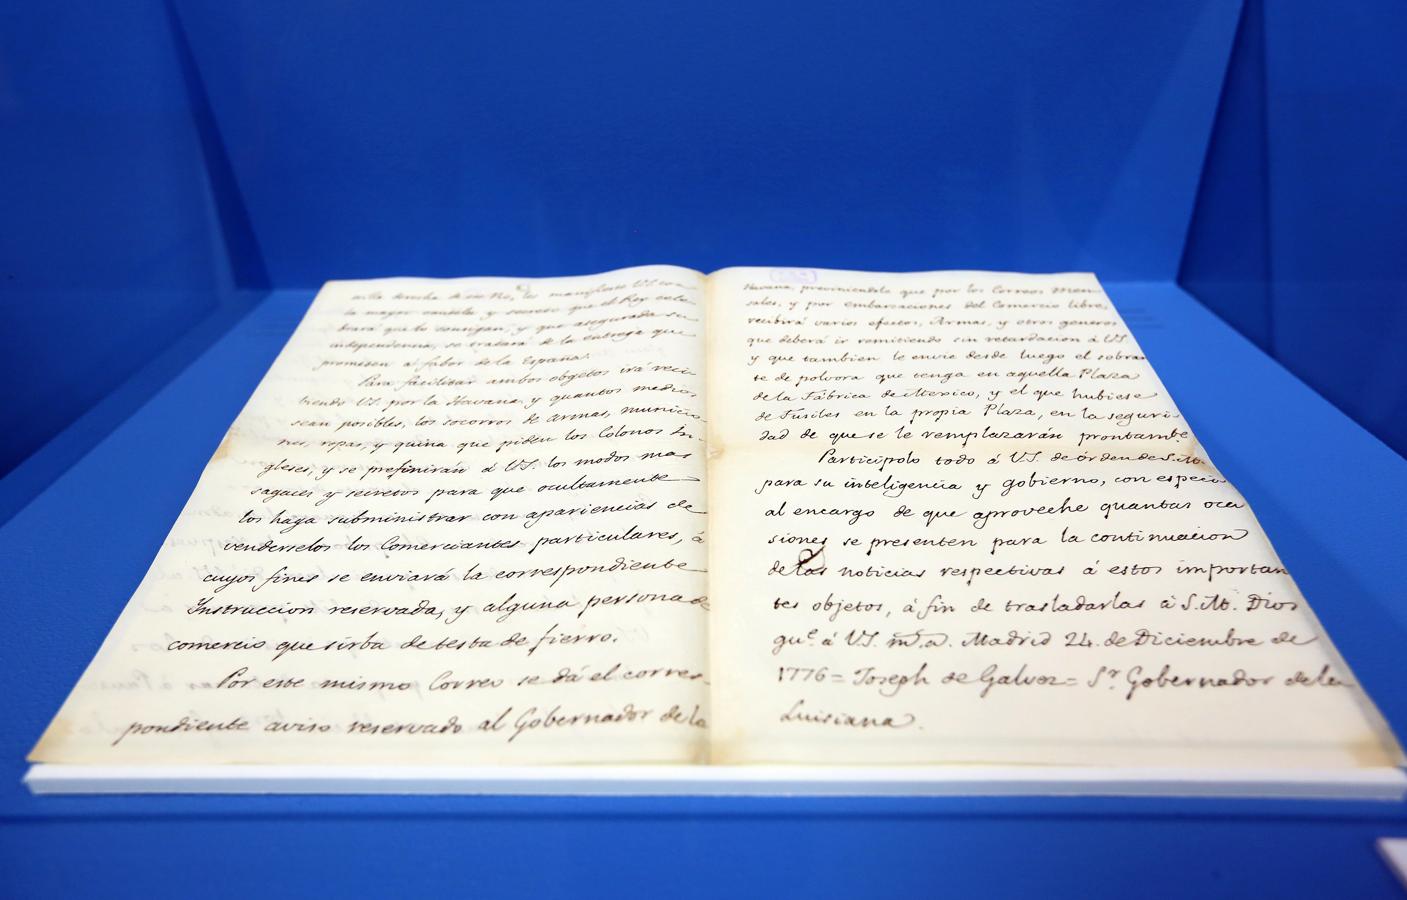 orilla derecha de ese Rio, les manifieste V.S. con
la mayor cautela y secreto que el Rey cele-
brará que lo consigan, y que asegurada su
independencia, se tratará de la entrega que
prometen á favor de la España.
Para facilitar ambos objetos irá reci-
biendo V.S. por la Havana, y quantos medios
sean posibles, los socorros de Armas, municio-
nes, ropas, y quina que piden los Colonos In-
gleses, y se prefinirán á V.S. los modos mas
sagaces y secretos para que ocultamente
los haga subministrar con apariencias de
venderselos los Comerciantes particulares, á
cuyos fines se enviará la correspondiente
Instruccion reservada, y alguna persona de
comercio que sirba de testa de fierro.
Por este mismo Correo se dá el corres-
pondiente aviso reservado al Gobernador de la
Havana, previniendole que por los Correos Men-
sales, y por embarcaciones del Comercio libre,
recibirá varios efectos, Armas, y otros generos
que deberá ir remitiendo sin retardacion á V.S.
y que tambien le envie desde luego el sobran
te de polvora que tenga en aquella Plaza
de la Fábrica de Mexico, y el que hubiese
de Fusiles en la propia Plaza, en la seguri-
dad de que se le remplazarán prontamte
Participolo todo á V.S. de órden de S.M.
para su inteligencia y gobierno, con especi
al encargo de que aproveche quantas oca
siones se presenten para la continuacion
de las noticias respectivas á estos importan
tes objetos, á fin de trasladarlas á S.M. Dios
gue. á V.S. ms. as. Madrid 24. de Diciembre de
1776 = Joseph de Galvez = Sr. Gobernador de la
Luisiana.